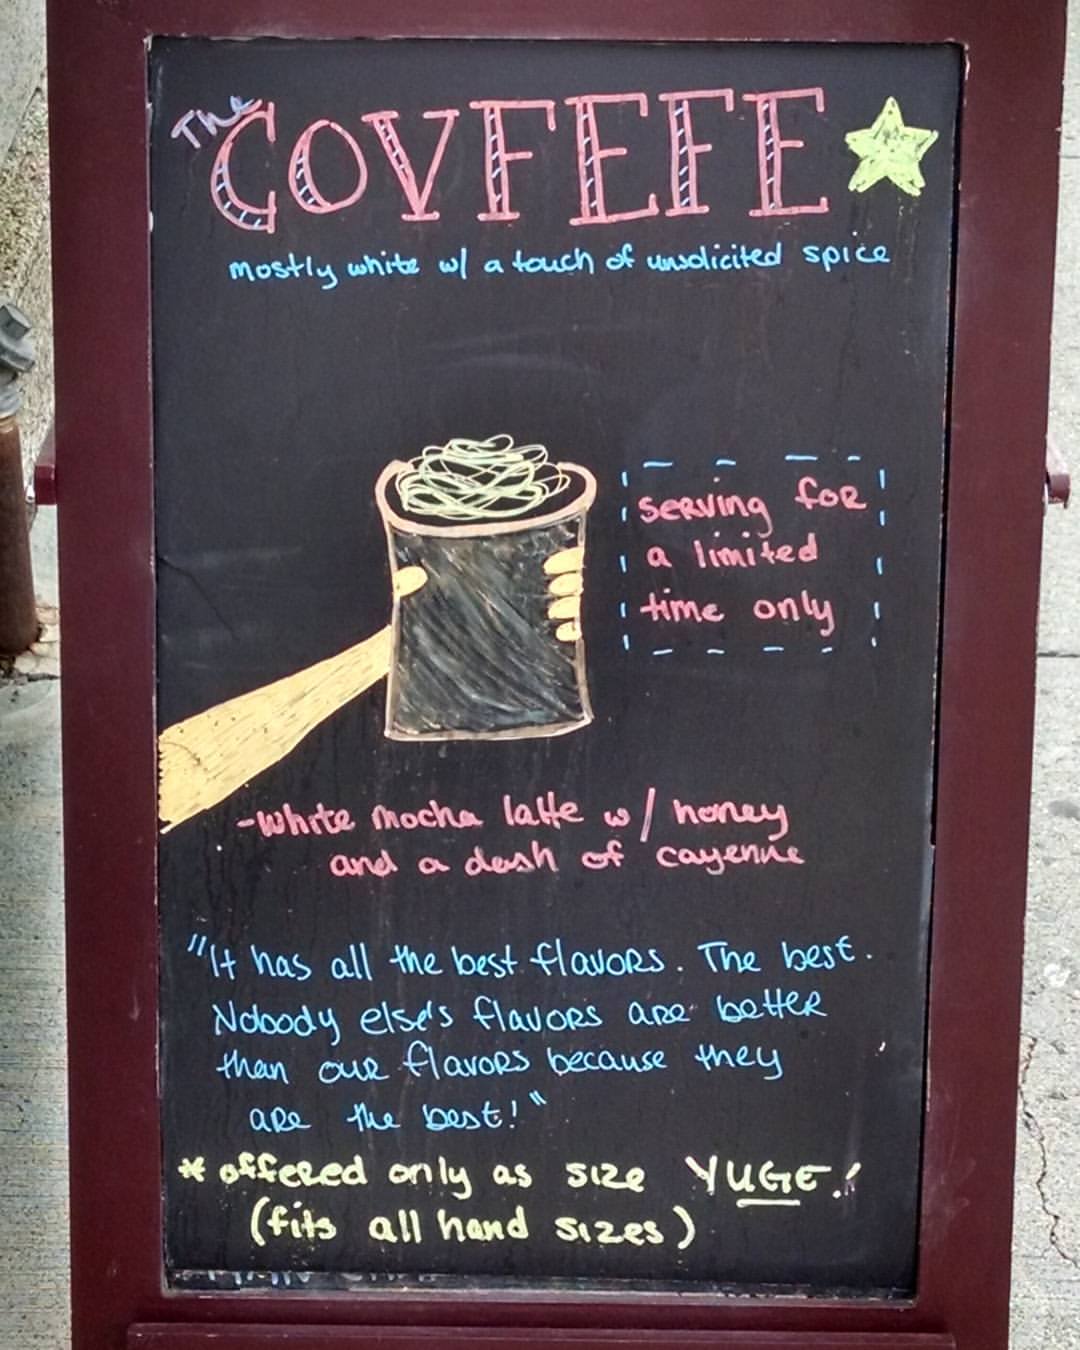 The COVFEFE
mostly white w/ a touch of unsolicited spice
serving for
a limited
time only
-White Mocha latte w/ honey
and a dash of cayenne
"It has all the best flavors. The best.
Nobody else's flavors are better
than our flavors because they
are the best!"
* offered only as size YUGE!
(fits all hand sizes)